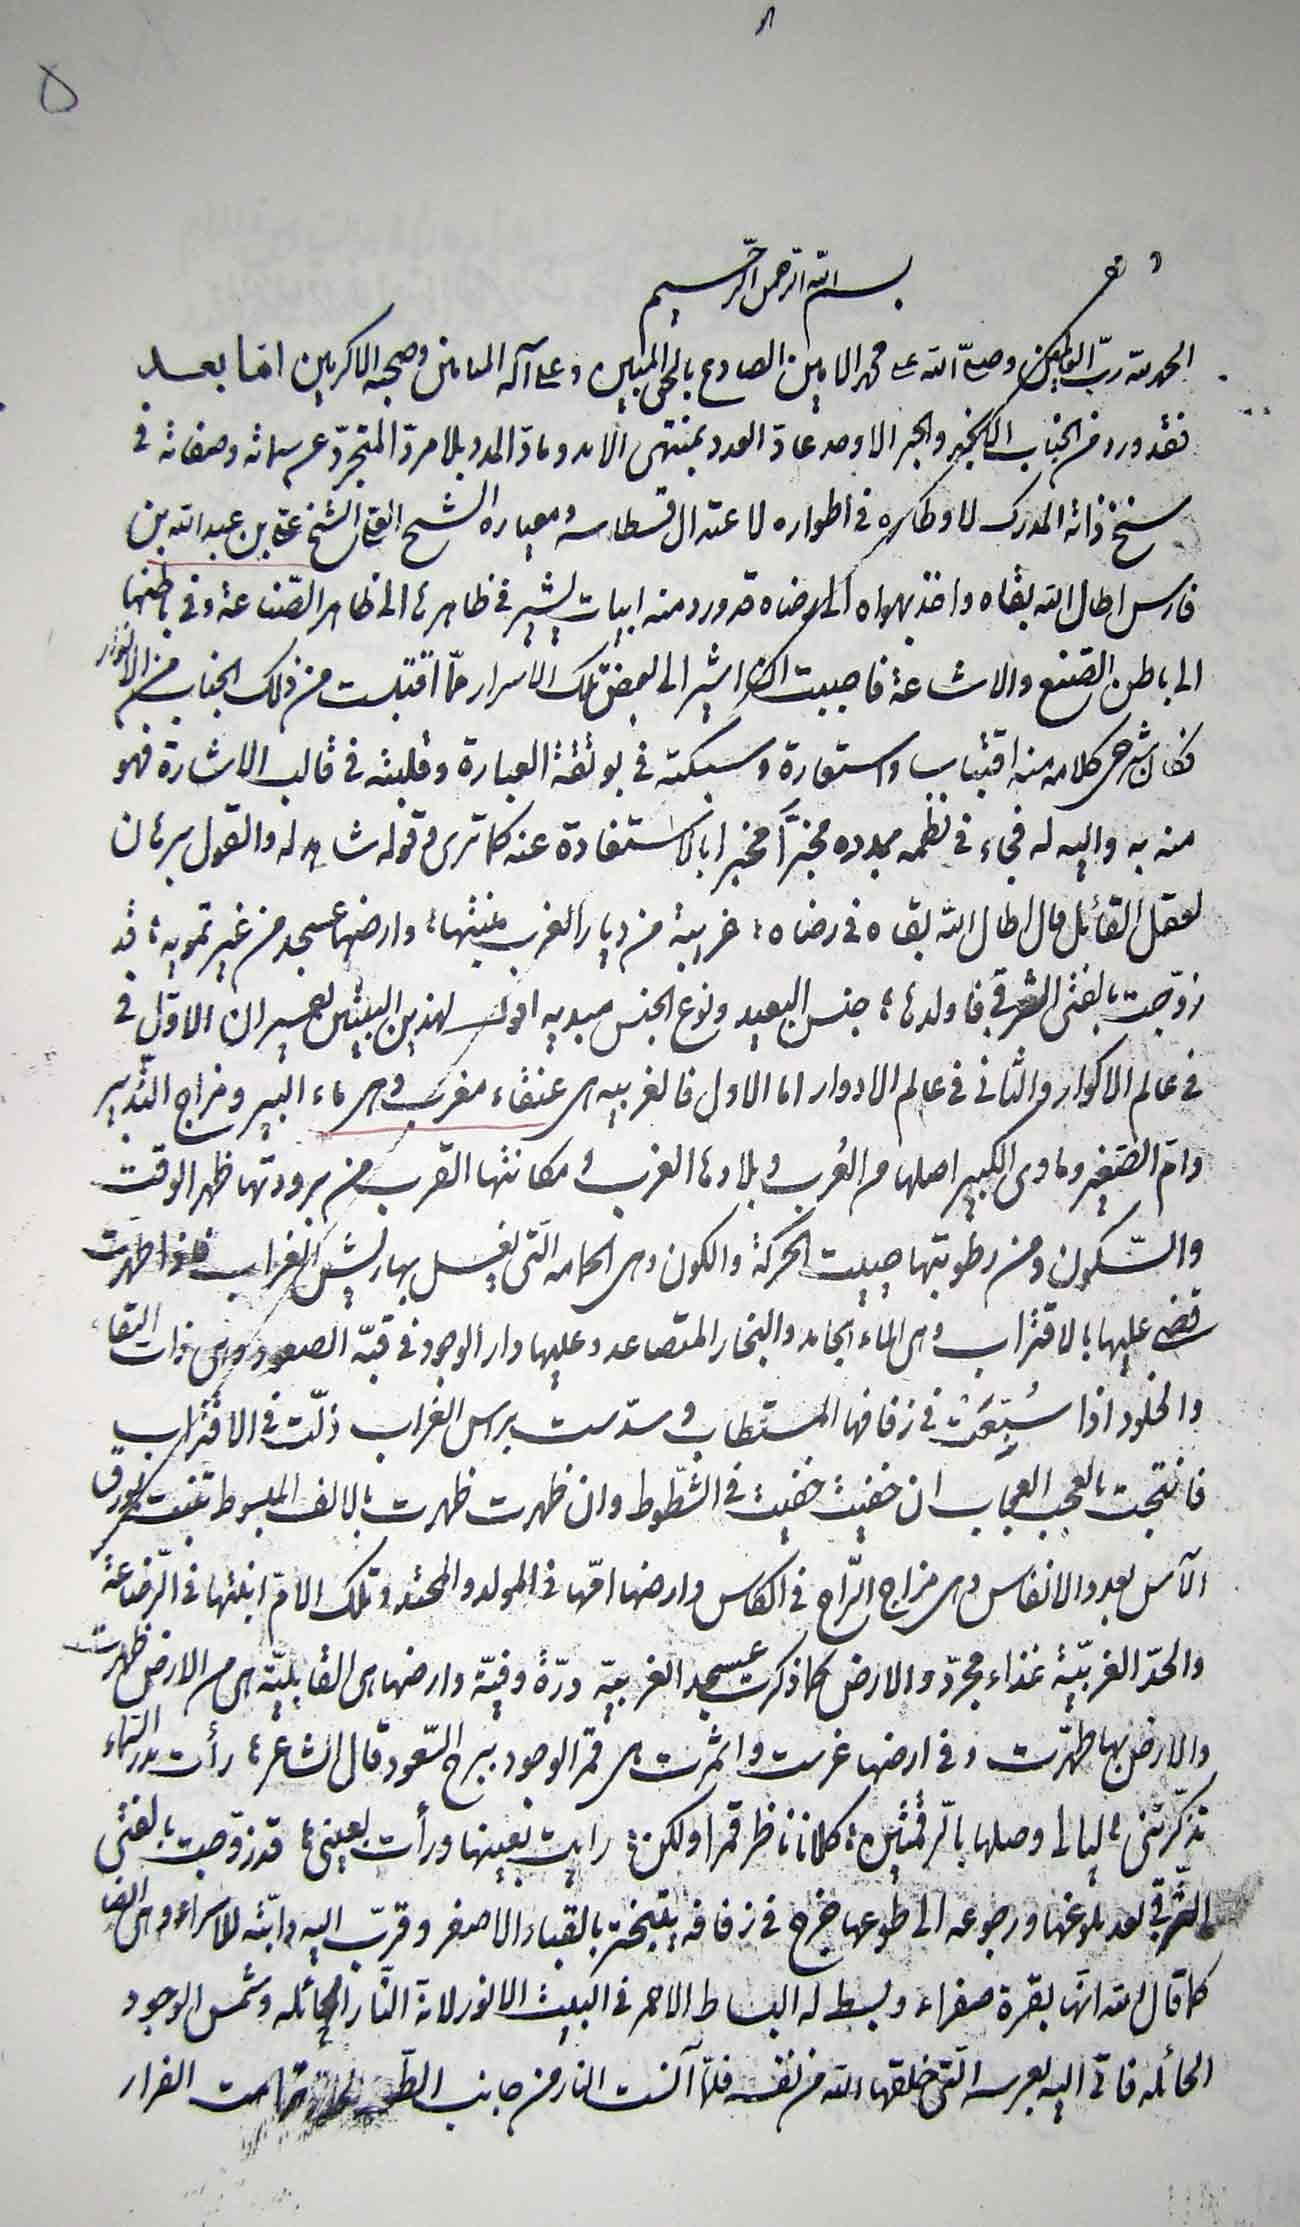 ٥
بسم الله الرحمن الرحيم
الحمد لله رب العالمين وصلى الله على محمد الامين الصادع بالحق المبين وعلى آله الميامين وصحبه الاكرمين اما بعد
فقد ورد من الجناب والحبر الاوحد عادّ العدد بمنتهى الامد ومادّ المدد بلا مردّ المتجرّد عن سماته وصفاته في
سنخ ذاته المدرك لاوطاره في اطواره لاعتدال قسطاسه ومعياره الشيخ الشيخ علي بن عبدالله بن
فارس اطال الله بقاه واخذ بهواه الى رضاه قد ورد منه ابيات يشير في ظاهرها الى ظاهر الصّناعة وفي باطنها
الى باطن الصّنع والاشاعة فاحببت ان اشير الى بعض تلك الاسرار ممّا اقتبست من ذلك الجناب من الانوار
فكان شرحى كلامه منه اقتباسا واستعارة وسبكته في بوتقة العبارة وقلبته في قالب الاشارة فهو
منه به واليه له فجاء في نظمه بمدده مخبرًا بالاستفادة عنه كما ترى وقوله شاهد له والقول برهان
لعقل القائل قال اطال الله بقاه في رضاه ؛ غريبة من ديار الغرب منبتها ؛ وارضها عسجد من غير تمويه ؛ قد
زوّجت بالفتى الشرقي فاولدها ؛ جنس البعيد ونوع الجنس مبديه اقول لهذين البيتين تعبيران الاوّل في
في عالم الاكوار والثاني في عالم الادوار اما الاول فالغربيه هى عنقاء مغرب وهى ماء البير ومزاج التدبير
وامّ الصّغير ومأوى الكبير اصلها من العُرب وبلادها الغرب ومكانتها القرب من برودتها ظهر الوقت
والسّكون ومن رطوبتها حييت الحركة والكون وهى الحامه الّتى يغسل بها ريش الغراب فاذا طهرت
قضى عليها بالاقتراب وهى الماء الجامد والبخار المتصاعد وعليها دار الوجود في قبّة الصعود وهى ذات البقاء
والخلود اذا سُبّعَتْ في زفافها المستطاب وسدّست براس الغراب ذلّت في الاقتراب
فانتجت بالعجب العجاب ان خفيت خفيت في الشّطوط وان ظهرت ظهرت بالالف المبسوط تنبت كورق
الآس بعدد الانفاس وهى مزاج الرّاح في الكاس وارضها امّها في المولد والمحتد وتلك الامّ ابنتها في الرّضاعة
والحدّ الغربيّة غذاء مجرّد والارض كما ذكرت عسجد الغربيّه درّة وفيّة وارضها هى القابليّة هى من الارض ظهرت
والارض بها طهرت وفي ارضها غرست واثمرت هى قمر الوجود ببرج السّعود قال الشاعر ؛ رأت بدر السّماء
تذكّرتنى ؛ ليالى وصلها بالرّقمتين ؛ كلانا ناظر قمرا ولكن ؛ رايت بعينها ورأت بعينى ؛ قد زوّجت بالفتى
الشّرقي بعد بلوغها ورجوعه الى طوعها خرج في زفافه يتبختر بالقباء الاصفر وقرّب اليه دابّته للاسراء وهى
كما قال الله انّها بقرة صفراء وبسط له البساط الاحمر في البيت الانور لانّه النّار الحائله وشمس الوجود
الحائله فاتى اليه بعرسه الّتى خلقها الله من نفسه فلمّا آنست النار من جانب الطّور الفرار